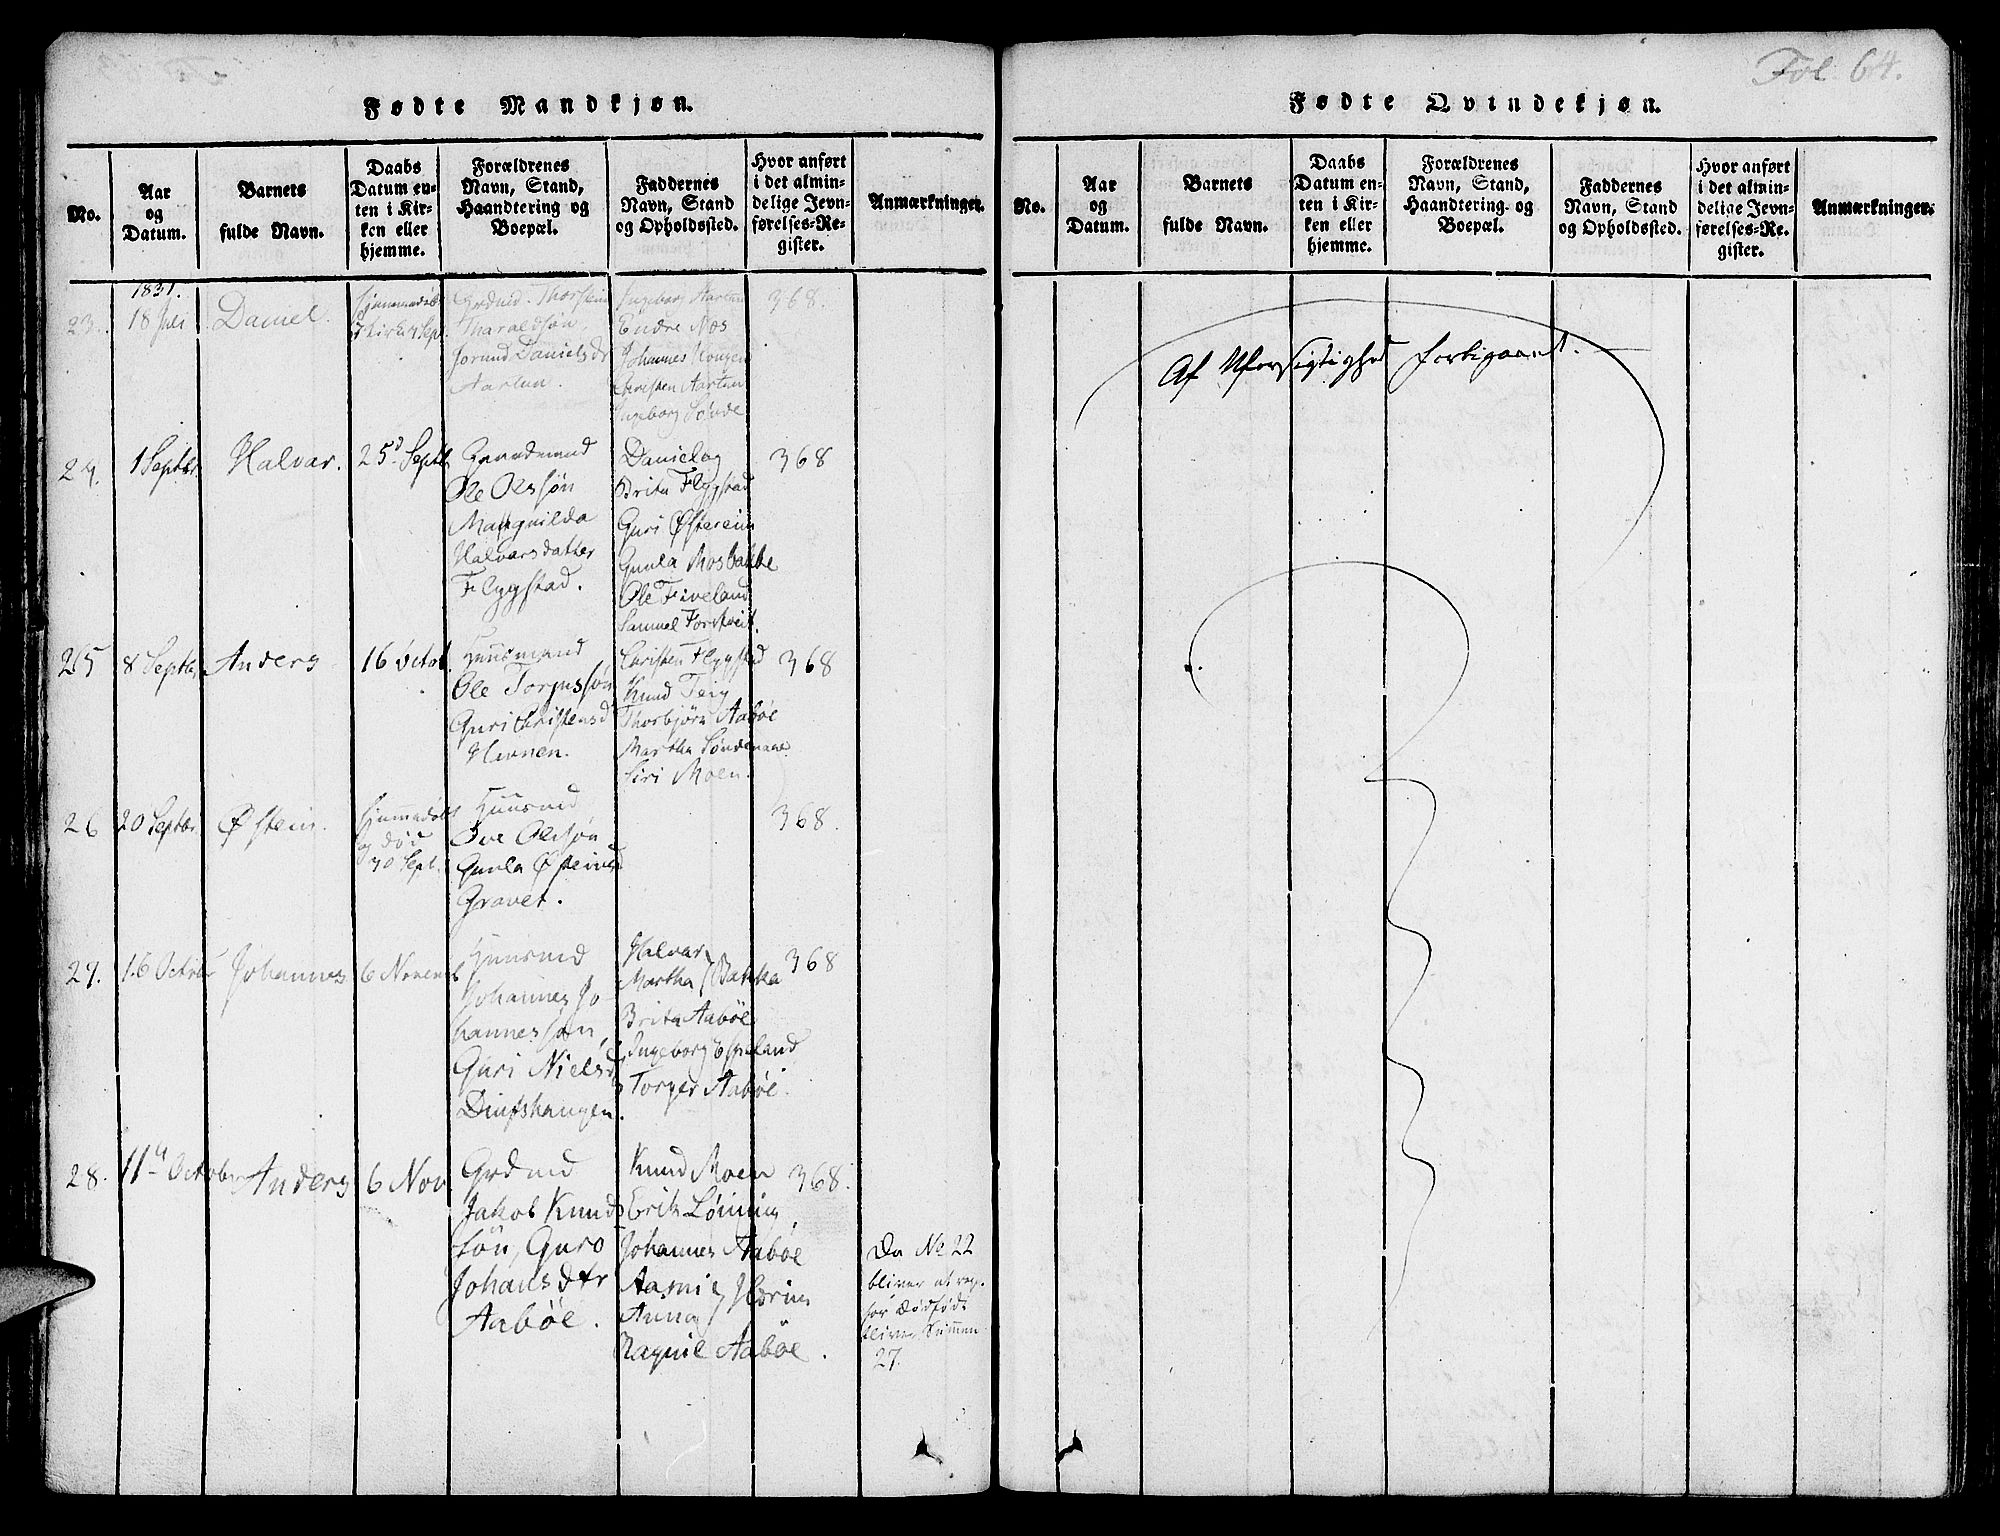 Fol 64.
Fødte Mandkjøn.
No.
Aar
og
Datum.
Barnets
fulde Navn.
Daabs
Datum en-
ten i Kir-
ken eller
hjemme.
Forældrenes
Navn, Stand,
Haandtering og
Boepæl.
Faddernes
Navn, Stand
og Opholdssted.
Hvor anført
i det almin-
delige Jevn-
førelses-Re-
gister.
Anmærkninger.
23.
1831.
18 Juli
Daniel.
Hjemmedøbt
Kirke 4 Sept
Grdmd. Thorstein
Tharaldsøn.
Jorund Danielsdr
Aartun.
Ingeborg Aartun
Endre Nos
Johannes
Christen Aartun
Ingeborg Sønde
368.
24.
1 Septbr.
Halvar.
25d Septb
Gaardmand
Ole Olssøn
Magnilda
Halvarsdatter
Flygstad.
Daniel og
Brita Flygstad
Guri Østerein
Gunla Mosbakke
Ole Fiveland
Samuel Forstveit.
368
25
8 Septbr
Anders
16 Octob.
Huusmand
Ole Torjussøn
Guri Christensd
Havnen.
Christen Flygstad
Knud Teig
Thorbjørn Aabøe
Martha Søndenaae
Siri Moen.
368
26
20 Septbr
Østein.
Hjemmedøbt
og død
30 Sept.
Huusmd
Ive Olssøn
Gunla Østeinsd
Gravet.
368.
27.
16 Octobr
Johannes
6 Novemb
Huusmd
Johannes Jo-
hannessøn,
Guri Nielsd
Dinushaugen.
Halvar
Martha Bakka
Brita Aabøe
Ingeborg Espeland
Torger Aabøe.
368
28.
11te October
Anders
6 Nov
Grdmd
Jakob Knuds
søn, Guro
Johansdtr
Aabøe.
Knud Moen
Erik Lønning
Johannes Aabøe
Aasnie Hærim
Anna
Ragnil Aabøe.
368.
Da No 22
bliver at reg.
for Dødfødt
bliver Summen
27.
Fødte Qvindekjøn.
No.
Aar
og
Datum.
Barnets
fulde Navn.
Daabs
Datum en-
ten i Kir-
ken eller
hjemme.
Forældrenes
Navn, Stand,
Haandtering og
Boepæl.
Faddernes
Navn, Stand
og Opholdssted.
Hvor anført
i det almin-
delige Jevn-
førelses-Re-
gister.
Anmærkninger.
Af Uforsigtighed forbigaaet.